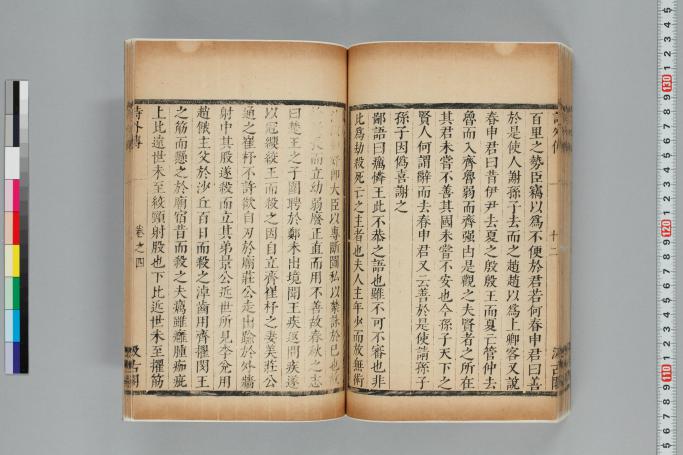 百里之勢臣竊以為不便於君若何春申君曰善
於是使人謝孫子去而之趙趙以為上卿客又說
春申君曰昔伊尹去夏之殷殷王而夏亡管仲去
魯而入齊魯弱而齊强由是觀之夫賢者之所在
其君未嘗不善其國未嘗不安也今孫子天下之
賢人何謂辭而去春申君又云善於是使請孫子
孫子因僞喜謝之
鄙語曰癘憐王此不恭之語也雖不可不審也非
此為劫殺死亡之主者也夫人主年少而放無術
即大臣以專斷圖私以禁誅於已也
而立幼弱廢正直而用不善故春秋之志
曰楚王之子圍聘於鄭未出境聞王疾返問疾遂
以冠纓絞王而殺之因自立齊崔杼之妻美莊公
通之崔杼不許欲自刃於廟莊公走出踰於外牆
射中其股遂殺而立其弟景公近世所見李兊用
趙餓主父於沙丘百日而殺之淖齒用齊擢閔王
之筋而懸之於廟宿昔而殺之夫癘雖癰腫痂疵
上比遠世未至絞頸射股也下比近世未至擢筋
詩外傳
卷之四
十二
汲古閣